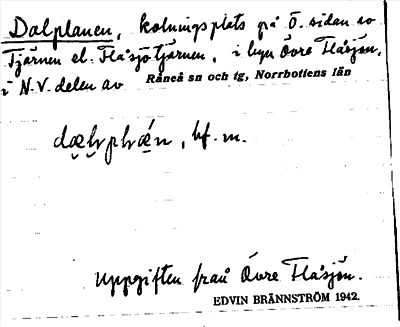 Dalplanen, kolningsplats på ö. sidan av
Tjärnen el. Flåsjötjärnen, i byn Övre Flåsjön,
i N.V. delen av Råneå sn och tg, Norrbottens län
bf. m.
Uppgiften från Övre Flåsjön.
EDVIN BRÄNNSTRÖM 1942.